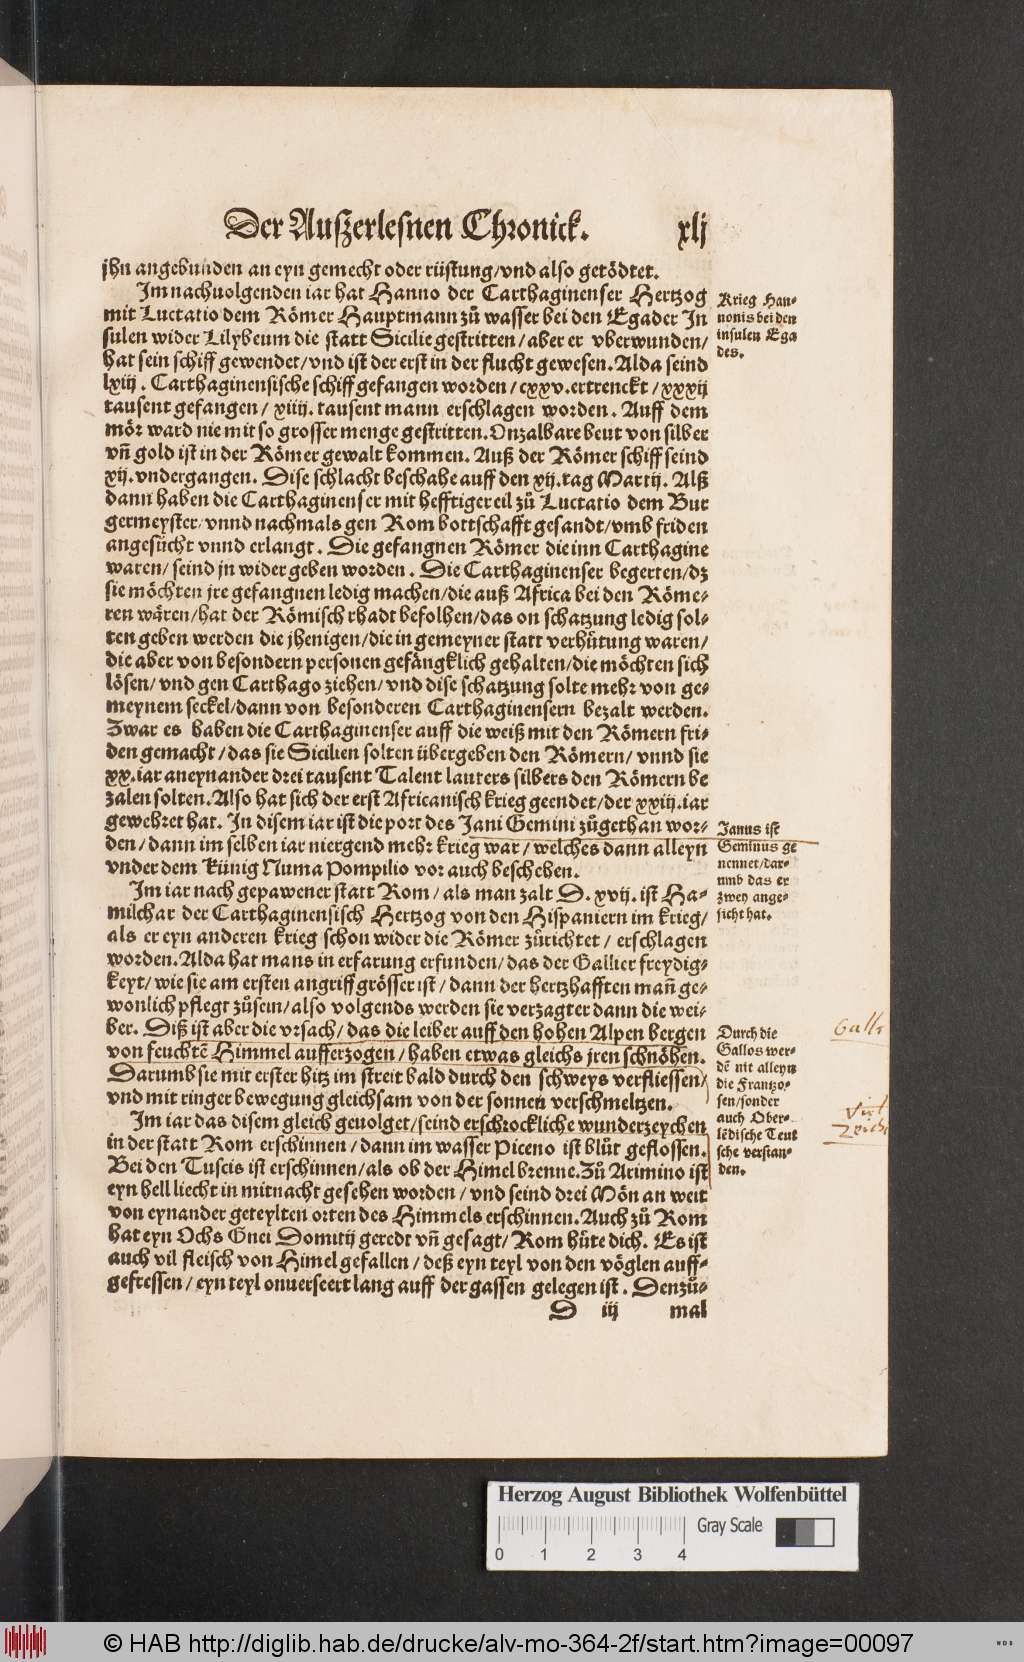 Der Auſzerlesnen Chronick. xlj
jhn angebunden an eyn gemecht oder rüſtung/vnd alſo getödtet.
Im nachuolgenden iar hat Hanno der Carthaginenſer Hertzog
mit Luctatio dem Römer Hauptmann zů waſſer bei den Egader In
ſulen wider Lilybeum die ſtatt Sicilie geſtritten/aber er vberwunden/
hat ſein ſchiff gewendet/vnd iſt der erſt in der flucht geweſen. Alda ſeind
lxiij. Carthaginenſiſche ſchiff gefangen worden/cxxv.ertrenckt/xxxij
tauſent gefangen/xiiij. tauſent mann erſchlagen worden. Auff dem
mör ward nie mit ſo groſſer menge geſtritten. Onzalbare beut von ſilber
vñ gold iſt in der Römer gewalt kommen. Auß der Römer ſchiff ſeind
xij.vndergangen. Diſe ſchlacht beſchahe auff den xij.tag Martij. Alß
dann haben die Carthaginenſer mit hefftiger eil zů Luctatio dem Bur
germeyſter/vnnd nachmals gen Rom bottſchafft geſandt/vmb friden
angeſücht vnnd erlangt. Die gefangnen Römer die inn Carthagine
waren/ſeind jn wider geben worden. Die Carthaginenſer begerten/dz
ſie möchten jre gefangnen ledig machen/die auß Africa bei den Röme-
ren wären/hat der Römiſch rhadt befolhen/das on ſchatzung ledig ſol-
ten geben werden die jhenigen/die in gemeyner ſtatt verhůtung waren/
die aber von beſondern perſonen gefängklich gehalten/die möchten ſich
löſen/vnd gen Carthago ziehen/vnd diſe ſchatzung ſolte mehr von ge-
meynem ſeckel/dann von beſonderen Carthaginenſern bezalt werden.
Zwar es haben die Carthaginenſer auff die weiß mit den Römern fri-
den gemacht/das ſie Sicilien ſolten übergeben den Römern/vnnd ſie
xx.iar aneynander drei tauſent Talent lauters ſilbers den Römern be
zalen ſolten. Alſo hat ſich der erſt Africaniſch krieg geendet/der xxiij.iar
gewehret hat. In diſem iar iſt die port des Jani Gemini zůgethan wor-
den/dann im ſelben iar niergend mehr krieg war/welches dann alleyn
vnder dem Künig Numa Pompilio vor auch beſchehen.
Im iar nach gepawener ſtatt Rom/als man zalt D.xvij. iſt Ha-
milchar der Carthaginenſiſch Hertzog von den Hiſpaniern im krieg/
als er eyn anderen krieg ſchon wider die Römer zůrichtet/erſchlagen
worden. Alda hat mans in erfarung erfunden/das der Gallier freydig-
keyt/wie ſie am erſten angriff gröſſer iſt/dann der hertzhafften mañ ge-
wonlich pflegt zůſein/alſo volgends werden ſie verzagter dann die wei-
ber. Diß iſt aber die vrſach/das die leiber auff den hohen Alpen bergen
von feuchtē Himmel aufferzogen/haben etwas gleichs jren ſchnöhen.
Darumb ſie mit erſter hitz im ſtreit bald durch den ſchweys verflieſſen/
vnd mit ringer bewegung gleichſam von der ſonnen verſchmeltzen.
Im iar das diſem gleich geuolget/ſeind erſchrockliche wunderzeychen
in der ſtatt Rom erſchinnen/dann im waſſer Piceno iſt blůt gefloſſen.
Bei den Tuſcis iſt erſchinnen/als ob der Himel brenne. Zů Arimino iſt
eyn hell liecht in mitnacht geſehen worden/vnd ſeind drei Mön an weit
von eynander geteylten orten des Himmels erſchinnen. Auch zů Rom
hat eyn Ochs Gnei Domitij geredt vñ geſagt/Rom hůte dich. Es iſt
auch vil fleiſch von Himel gefallen/deß eyn teyl von den vöglen auff-
gefreſſen/eyn teyl onuerſeert lang auff der gaſſen gelegen iſt. Denzů-
D iij mal
Krieg Han-
nonis bei den
inſulen Ega
des.
Janus iſt
Geminus ge
nennet/dar-
umb das er
zwey ange-
ſicht hat.
Durch die
Gallos wer-
dē nit alleyn
die Frantzo-
ſen/ſonder
auch Ober-
lēdiſche Teut
ſche verſtan-
den.
Herzog August Bibliothek Wolfenbüttel
Gray Scale
0 1 2 3 4
© HAB http://diglib.hab.de/drucke/alv-mo-364-2f/start.htm?image=00097